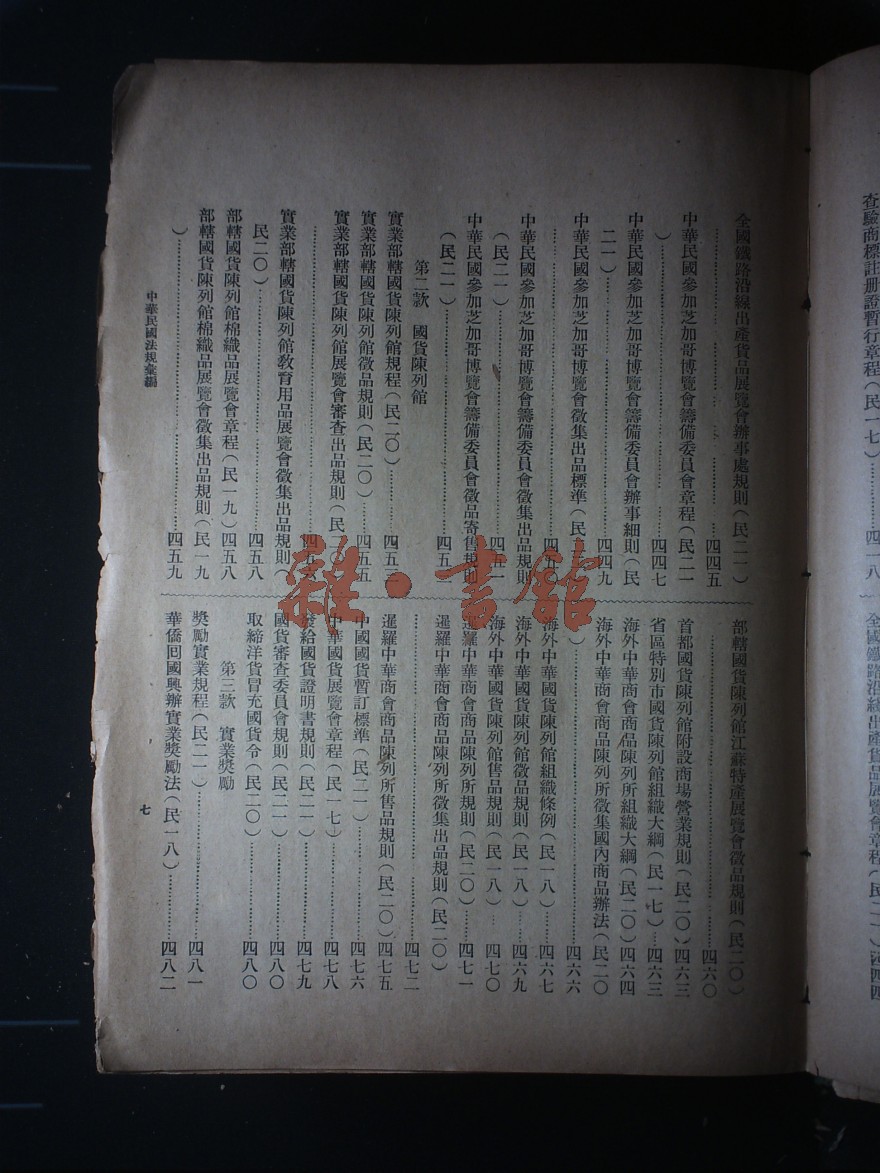 查驗商標註册證暫行章程(民一七)……四一八
全國鐵路沿線出產貨品展覽會章程(民二一)四四四
全國鐵路沿線出產貨品展覽會辦事處規則(民二一)
……四四五
中華民國參加芝加哥博覽會籌備委員會章程(民二一
)……四四七
中華民國參加芝加哥博覽會籌備委員會辦事細則(民
二一)……四四九
中華民國參加芝加哥博覽會徵集出品標準(民
……四五
中華民國參加芝加哥博覽會籌備委員會徵集出品規則
(民二一)……四五一
中華民國參加芝加哥博覽會籌備委員會徵品寄售規則
(民二一)……四五
第二款 國貨陳列館
實業部轄國貨陳列館規程(民二〇)……四五三
實業部轄國貨陳列館徵品規則(民二〇)……四五五
實業部轄國貨陳列館展覽會審查出品規則(民二〇)
……四五六
實業部轄國貨陳列館教育用品展覽會徵集出品規則(
民二〇)……四五八
部轄國貨陳列館棉織品展覽會章程(民一九)四五八
部轄國貨陳列館棉織品展覽會徵集出品規則(民一九
)……四五九
部轄國貨陳列館江蘇特產展覽會徵品規則(民二〇)
……四六〇
首都國貨陳列館附設商場營業規則(民二〇)四六三
省區特別市國貨陳列館組織大綱(民一七)…四六三
海外中華商會商品陳列所組織大綱(民二〇)四六四
海外中華商會商品陳列所徵集國內商品辦法(民二〇
)……四六六
海外中華國貨陳列館組織條例(民一八)……四六七
海外中華國貨陳列館徵品規則(民一八)……四六九
海外中華國貨陳列館售品規則(民一八)…四七〇
暹羅中華商會商品陳列所規則(民二〇)……四七一
暹羅中華商會商品陳列所徵集出品規則(民二〇)
……四七二
暹羅中華商會商品陳列所售品規則(民二〇)四七五
中國國貨暫訂標準(民二一)……四七六
中華國貨展覽會章程(民一七)……四七八
發給國貨證明書規則(民二一)……四七九
國貨審查委員會規則(民二一)……四八〇
取締洋貨冒充國貨令(民二〇)……四八〇
第三款 實業獎勵
獎勵實業規程(民二一)……四八一
華僑回國興辦實業獎勵法(民一八)……四八二
中華民國法規彙編
七
雜·書館